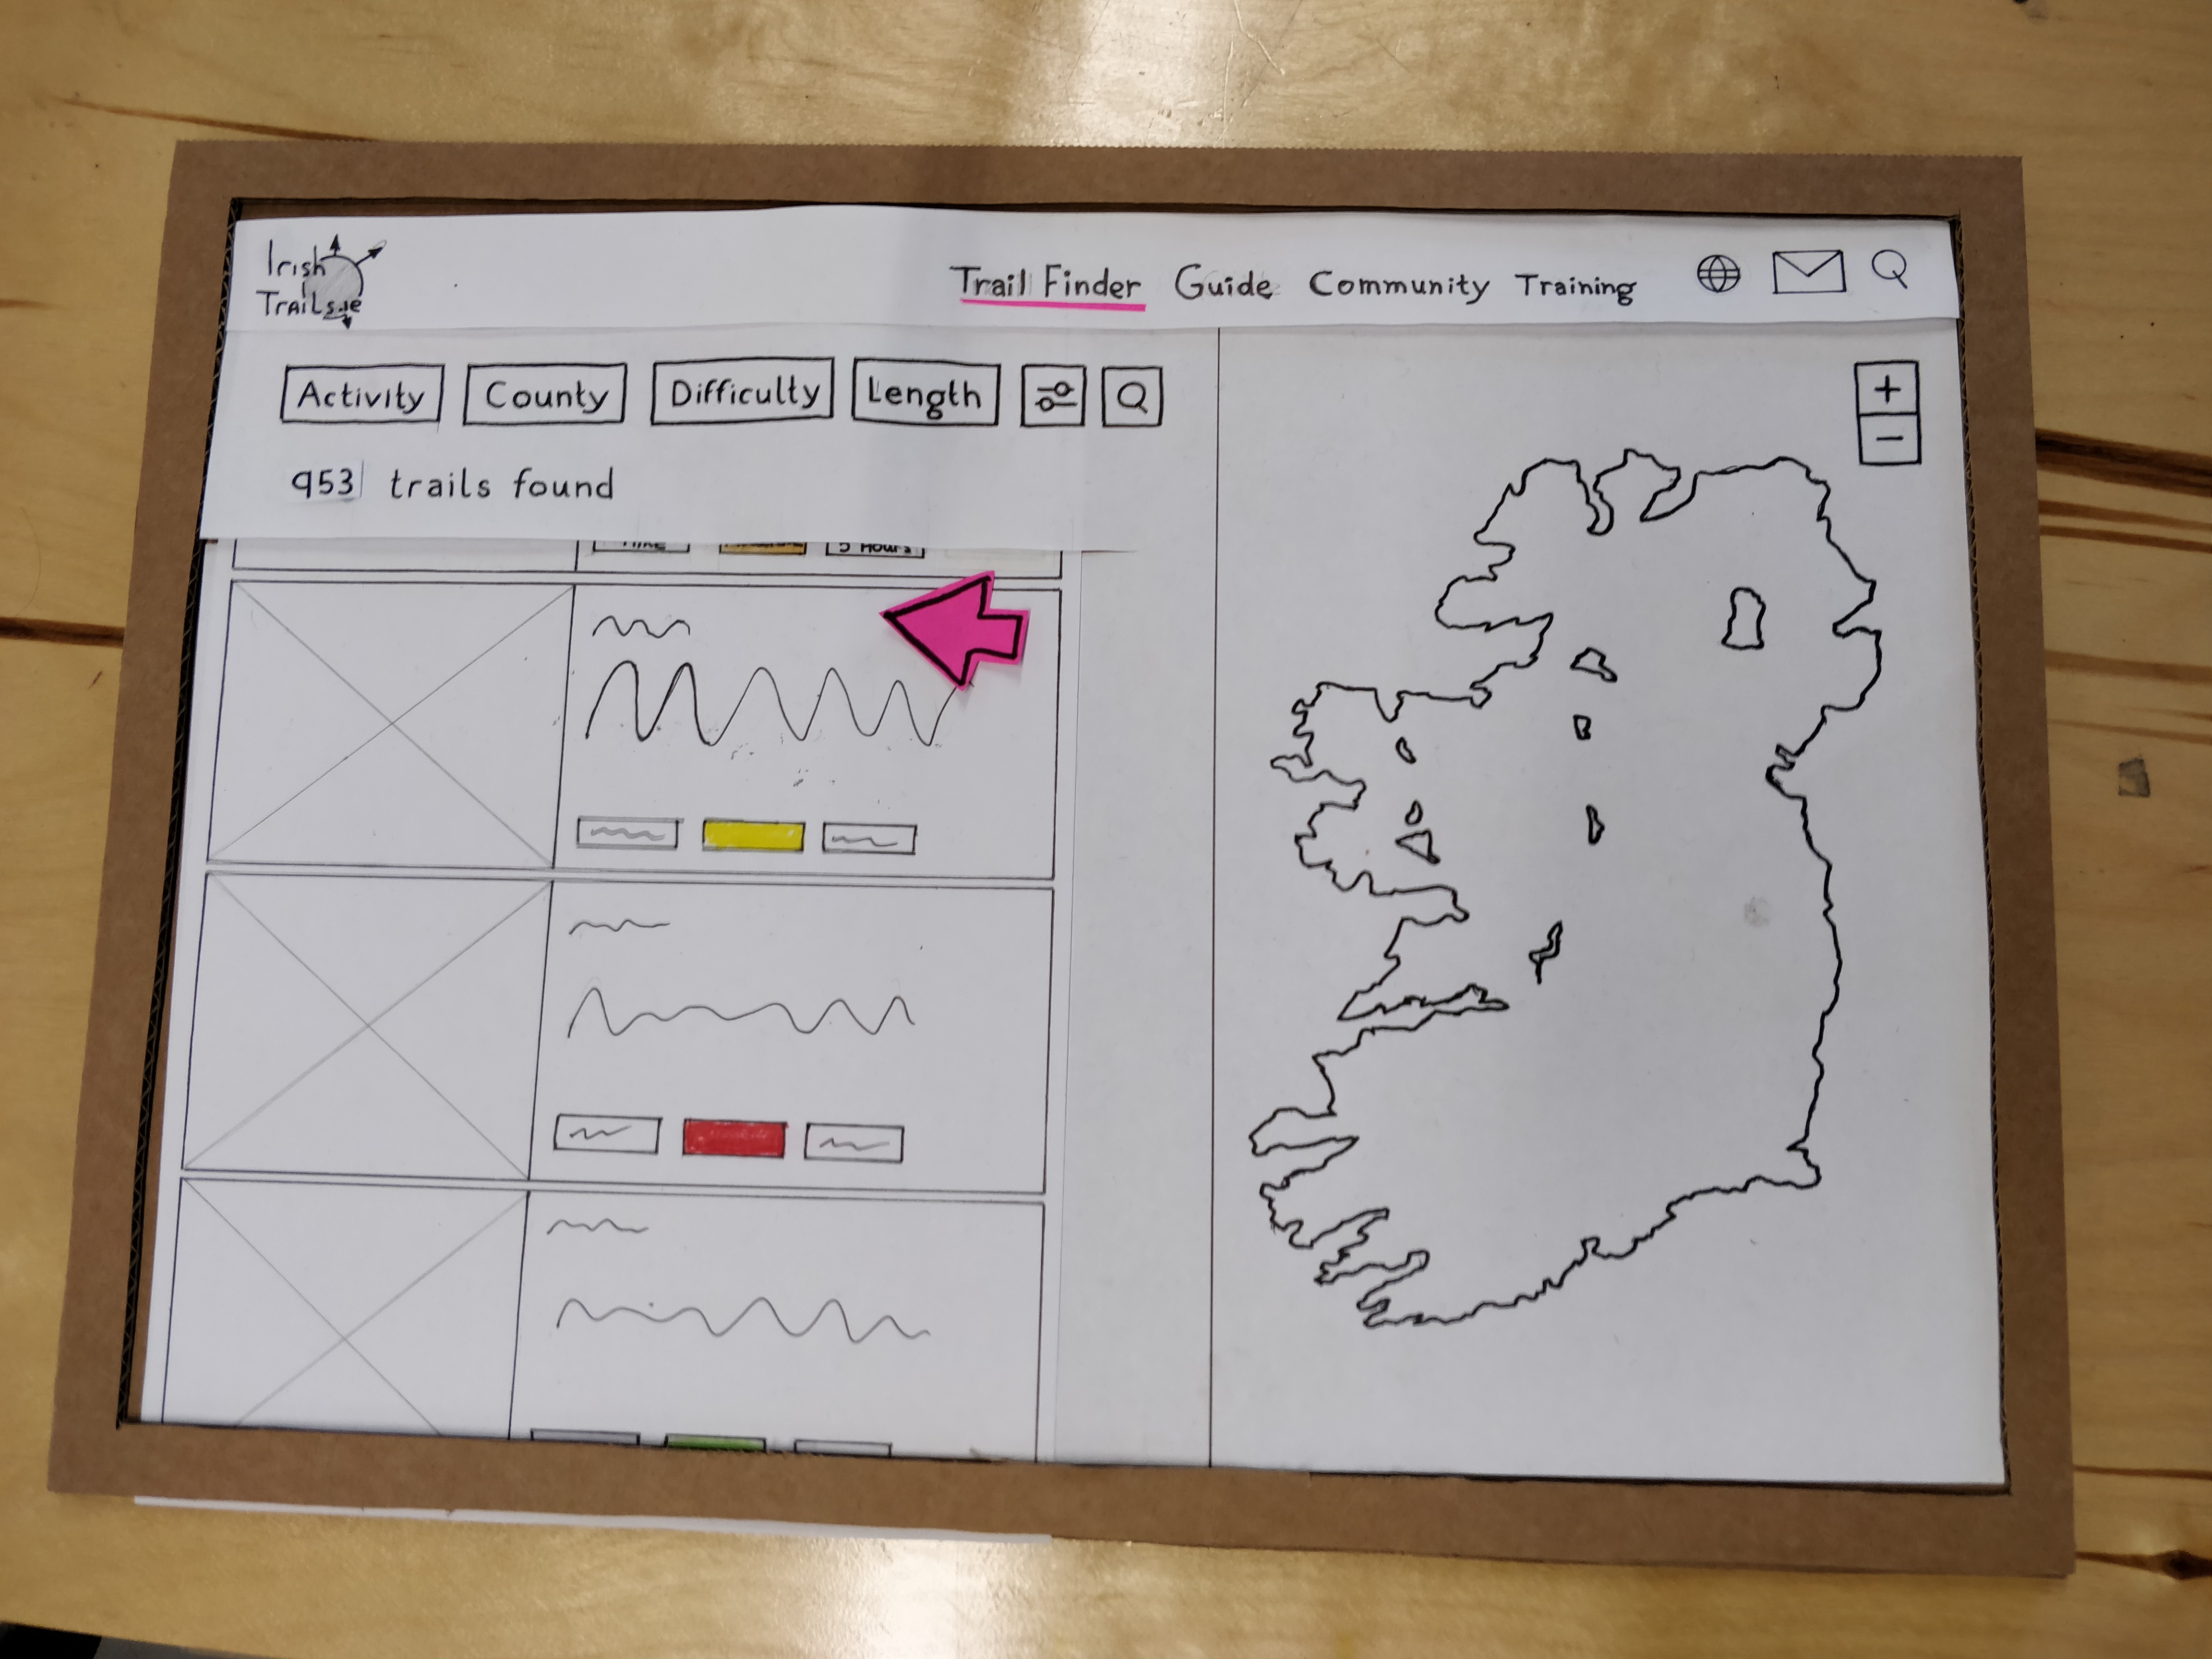 Irish
Trails.ie
Trail Finder Guide Community Training
Activity County Difficulty Length
+
-
953 trails found
5 Hours